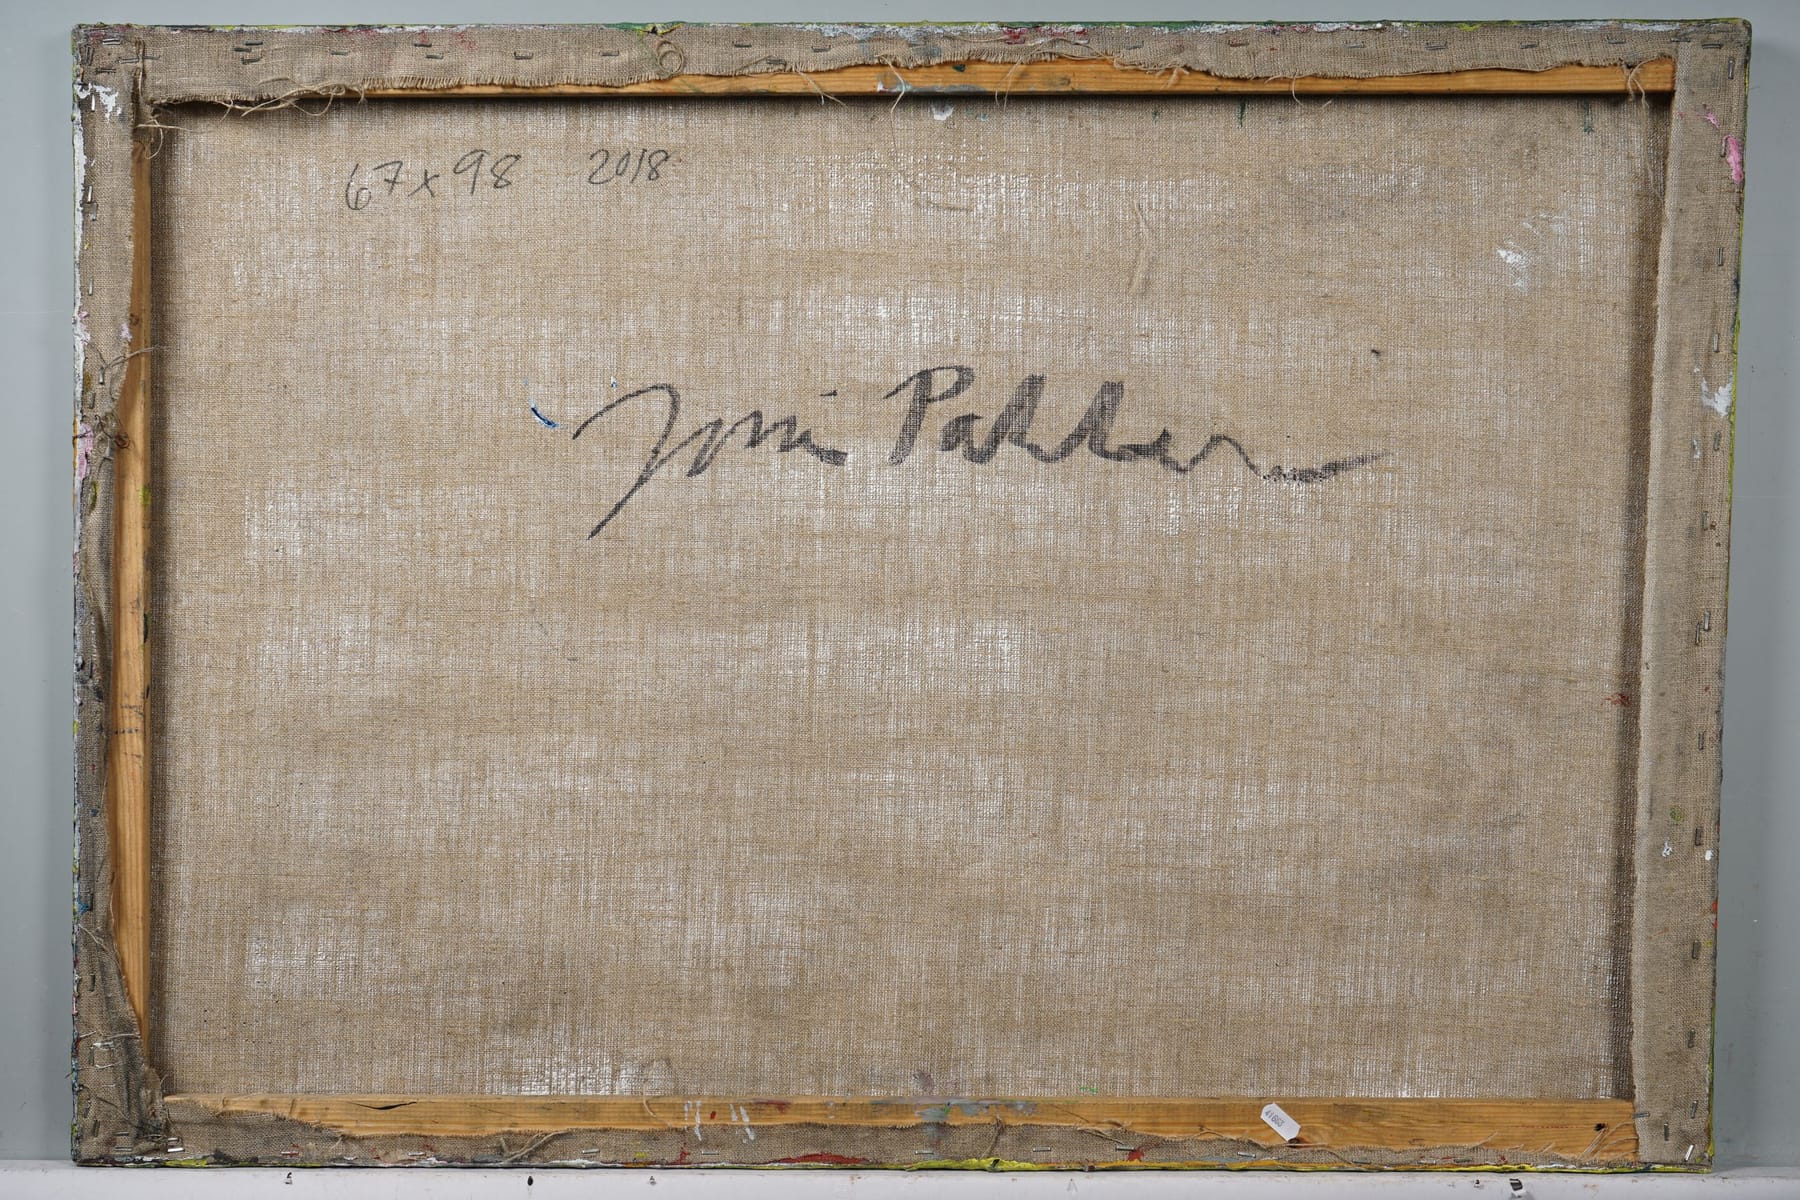 67x98 2018
Joni Pakker
41863